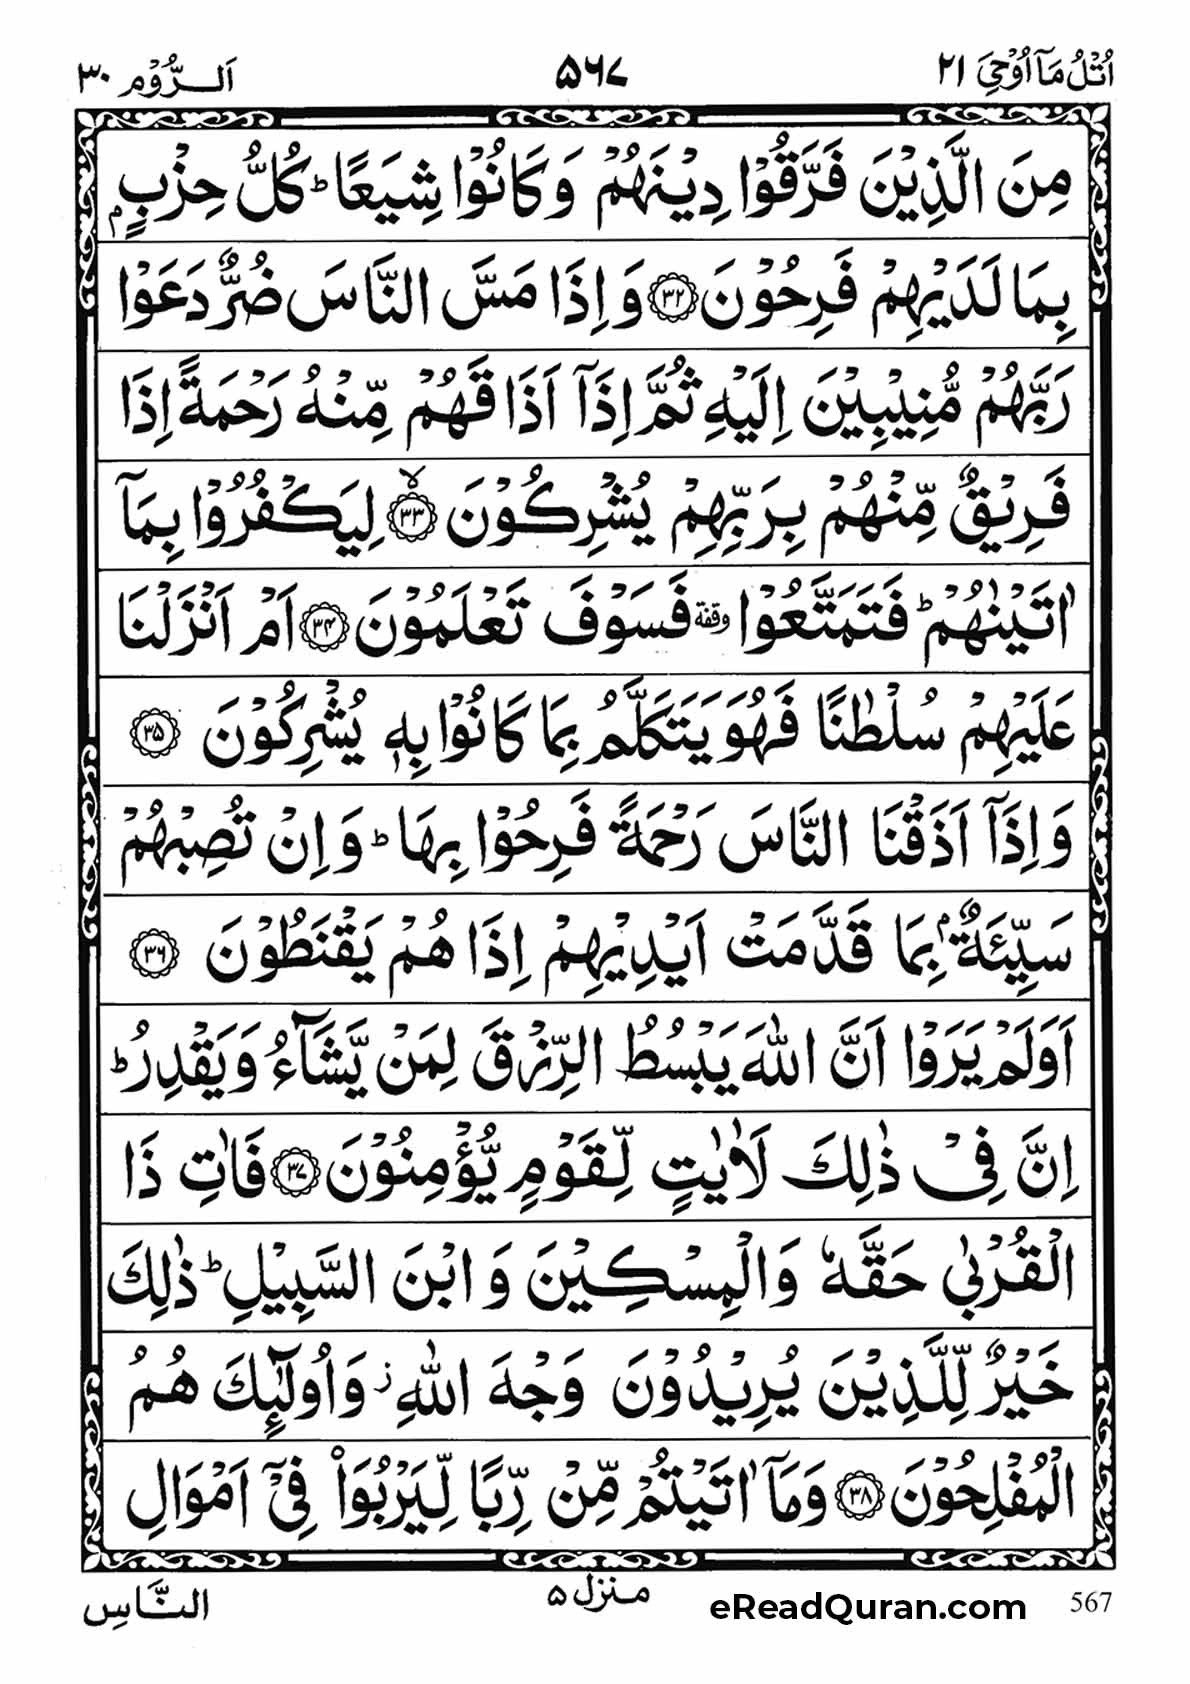 اُتْلُ مَآ اُوْحِیَ ۲۱
۵۶۷
اَلرُّوْم ۳۰
مِنَ الَّذِیْنَ فَرَّقُوْا دِیْنَهُمْ وَ كَانُوْا شِیَعًا ؕ كُلُّ حِزْبٍۭ
بِمَا لَدَیْهِمْ فَرِحُوْنَ ۳۲ وَ اِذَا مَسَّ النَّاسَ ضُرٌّ دَعَوْا
رَبَّهُمْ مُّنِیْبِیْنَ اِلَیْهِ ثُمَّ اِذَاۤ اَذَاقَهُمْ مِّنْهُ رَحْمَةً اِذَا
فَرِیْقٌ مِّنْهُمْ بِرَبِّهِمْ یُشْرِكُوْنَ ۙ۳۳ لِیَكْفُرُوْا بِمَاۤ
اٰتَیْنٰهُمْ ؕ فَتَمَتَّعُوْا وقفة فَسَوْفَ تَعْلَمُوْنَ ۳۴ اَمْ اَنْزَلْنَا
عَلَیْهِمْ سُلْطٰنًا فَهُوَ یَتَكَلَّمُ بِمَا كَانُوْا بِهٖ یُشْرِكُوْنَ ۳۵
وَ اِذَاۤ اَذَقْنَا النَّاسَ رَحْمَةً فَرِحُوْا بِهَا ؕ وَ اِنْ تُصِبْهُمْ
سَیِّئَةٌۢ بِمَا قَدَّمَتْ اَیْدِیْهِمْ اِذَا هُمْ یَقْنَطُوْنَ ۳۶
اَوَلَمْ یَرَوْا اَنَّ اللّٰهَ یَبْسُطُ الرِّزْقَ لِمَنْ یَّشَآءُ وَ یَقْدِرُ ؕ
اِنَّ فِیْ ذٰلِكَ لَاٰیٰتٍ لِّقَوْمٍ یُّؤْمِنُوْنَ ۳۷ فَاٰتِ ذَا
الْقُرْبٰی حَقَّهٗ وَ الْمِسْكِیْنَ وَ ابْنَ السَّبِیْلِ ؕ ذٰلِكَ
خَیْرٌ لِّلَّذِیْنَ یُرِیْدُوْنَ وَجْهَ اللّٰهِ ؗ وَ اُولٰٓئِكَ هُمُ
الْمُفْلِحُوْنَ ۳۸ وَ مَاۤ اٰتَیْتُمْ مِّنْ رِّبًا لِّیَرْبُوَاۡ فِیْۤ اَمْوَالِ
النَّاسِ
منزل ۵
eReadQuran.com
567